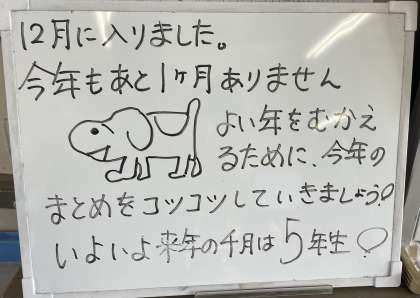 12月に入りました。
今年もあと1ヶ月ありません
よい年をむかえ
るために、今年の
まとめをコツコツしていきましょう!
いよいよ来年の千月は5年生!